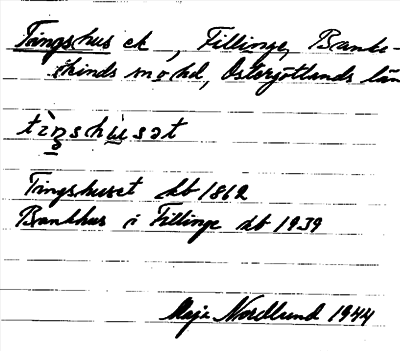 Tingshus ek, Fillinge, Banke-
kinds sn o hd, Östergötlands län
Tingshuset kb 1862
Bankhus i Fillinge kb 1939
Maja Nordlund 1944